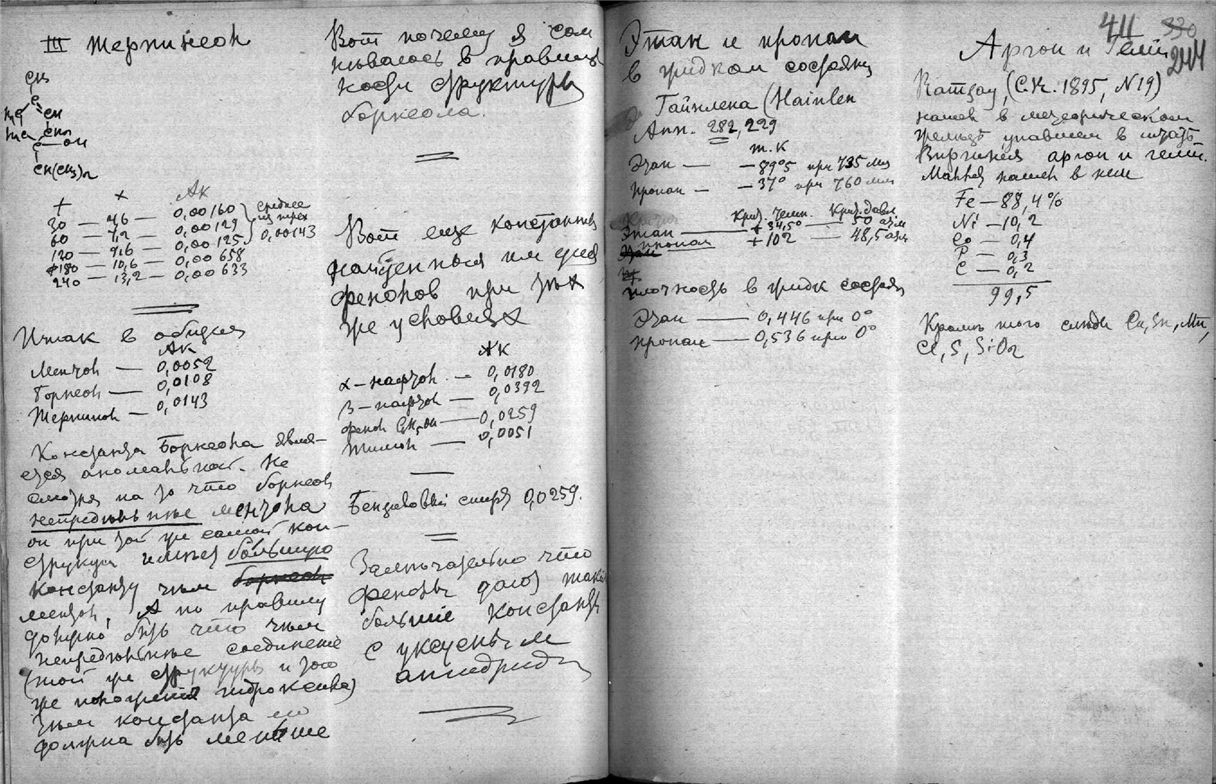 III Терпинеол
CH3
C
H2C CH
H2C CH2
C — OH
CH(CH3)2
t x AK
30 — 46 — 0,00160
60 — 7,2 — 0,00129
120 — 9,6 — 0,00125
180 — 10,6 — 0,00658
240 — 13,2 — 0,00633
среднее
из трех
0,00143
Итак в общем
AK
Ментол — 0,0052
Борнеол — 0,0108
Терпинол — 0,0143
Константа Борнеола явля-
ется аномальной. Не
смотря на то что борнеол
непредѣльнѣе ментола
он при той же самой кон-
структуре имеет большую
константу чем
ментол, А по правилу
должно быть что чем
непредѣльнѣе соединение
(той же структуры и того
же положения гидроксила)
тем константа его
должна быть меньше
Вот почему я сом
нываюсь в правиль
ности структуры
борнеола.
Вот еще константы
найденныя им для
фенолов при тех
же условиях
AK
α — нафтол — 0,0180
β — нафтол — 0,0392
фенол C6H5OH — 0,0259
Тимол — 0,0051
Бензиловый спирт 0,0259.
Замечательно что
фенолы дают такие
большие константы
с уксусным
ангидридом
411 330
244
Этан и пропан
в жидком состоянии
Гайнлена (Hainlen
Ann. 282, 229
т. к
Этан — — 89°5 при 735 мм
Пропан — — 37° при 760 мм
Крит. темп. Крит. давл
Этан — + 34,5° — 50 атм
пропан + 102 — 48,5 атм
плотность в жидк состоян
Этан — 0,446 при 0°
Пропан — 0,536 при 0°
Аргон и Гелий
Рамзай, (C.R. 1895, N19)
нашел в метеорическом
железе упавшем в штате
Виргиния аргон и гелий.
Маллет нашел в нем
Fe — 88,4%
Ni — 10,2
Co — 0,4
P — 0,3
C — 0,2
99,5
Кроме того следы Cu, Sn, Mn,
Cl, S, SiO2